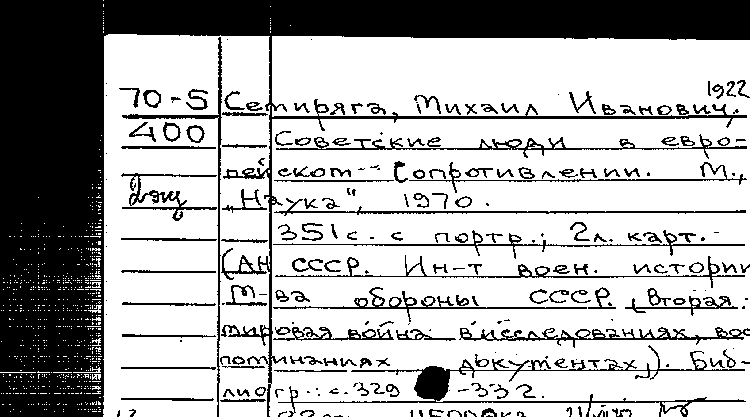 1922
70-5 Семиряга, Михаил Иванович,
400 Советские люди в евро-
пейском Сопротивлении. М.,
2 экз „Наука", 1970.
351 с. с портр.; 2 л. карт.
(АН СССР. Ин-т воен. истории
М-ва обороны СССР. (Вторая
мировая война в исследованиях, вос
поминаниях, документах). Биб-
лиогр.: с. 329-332.